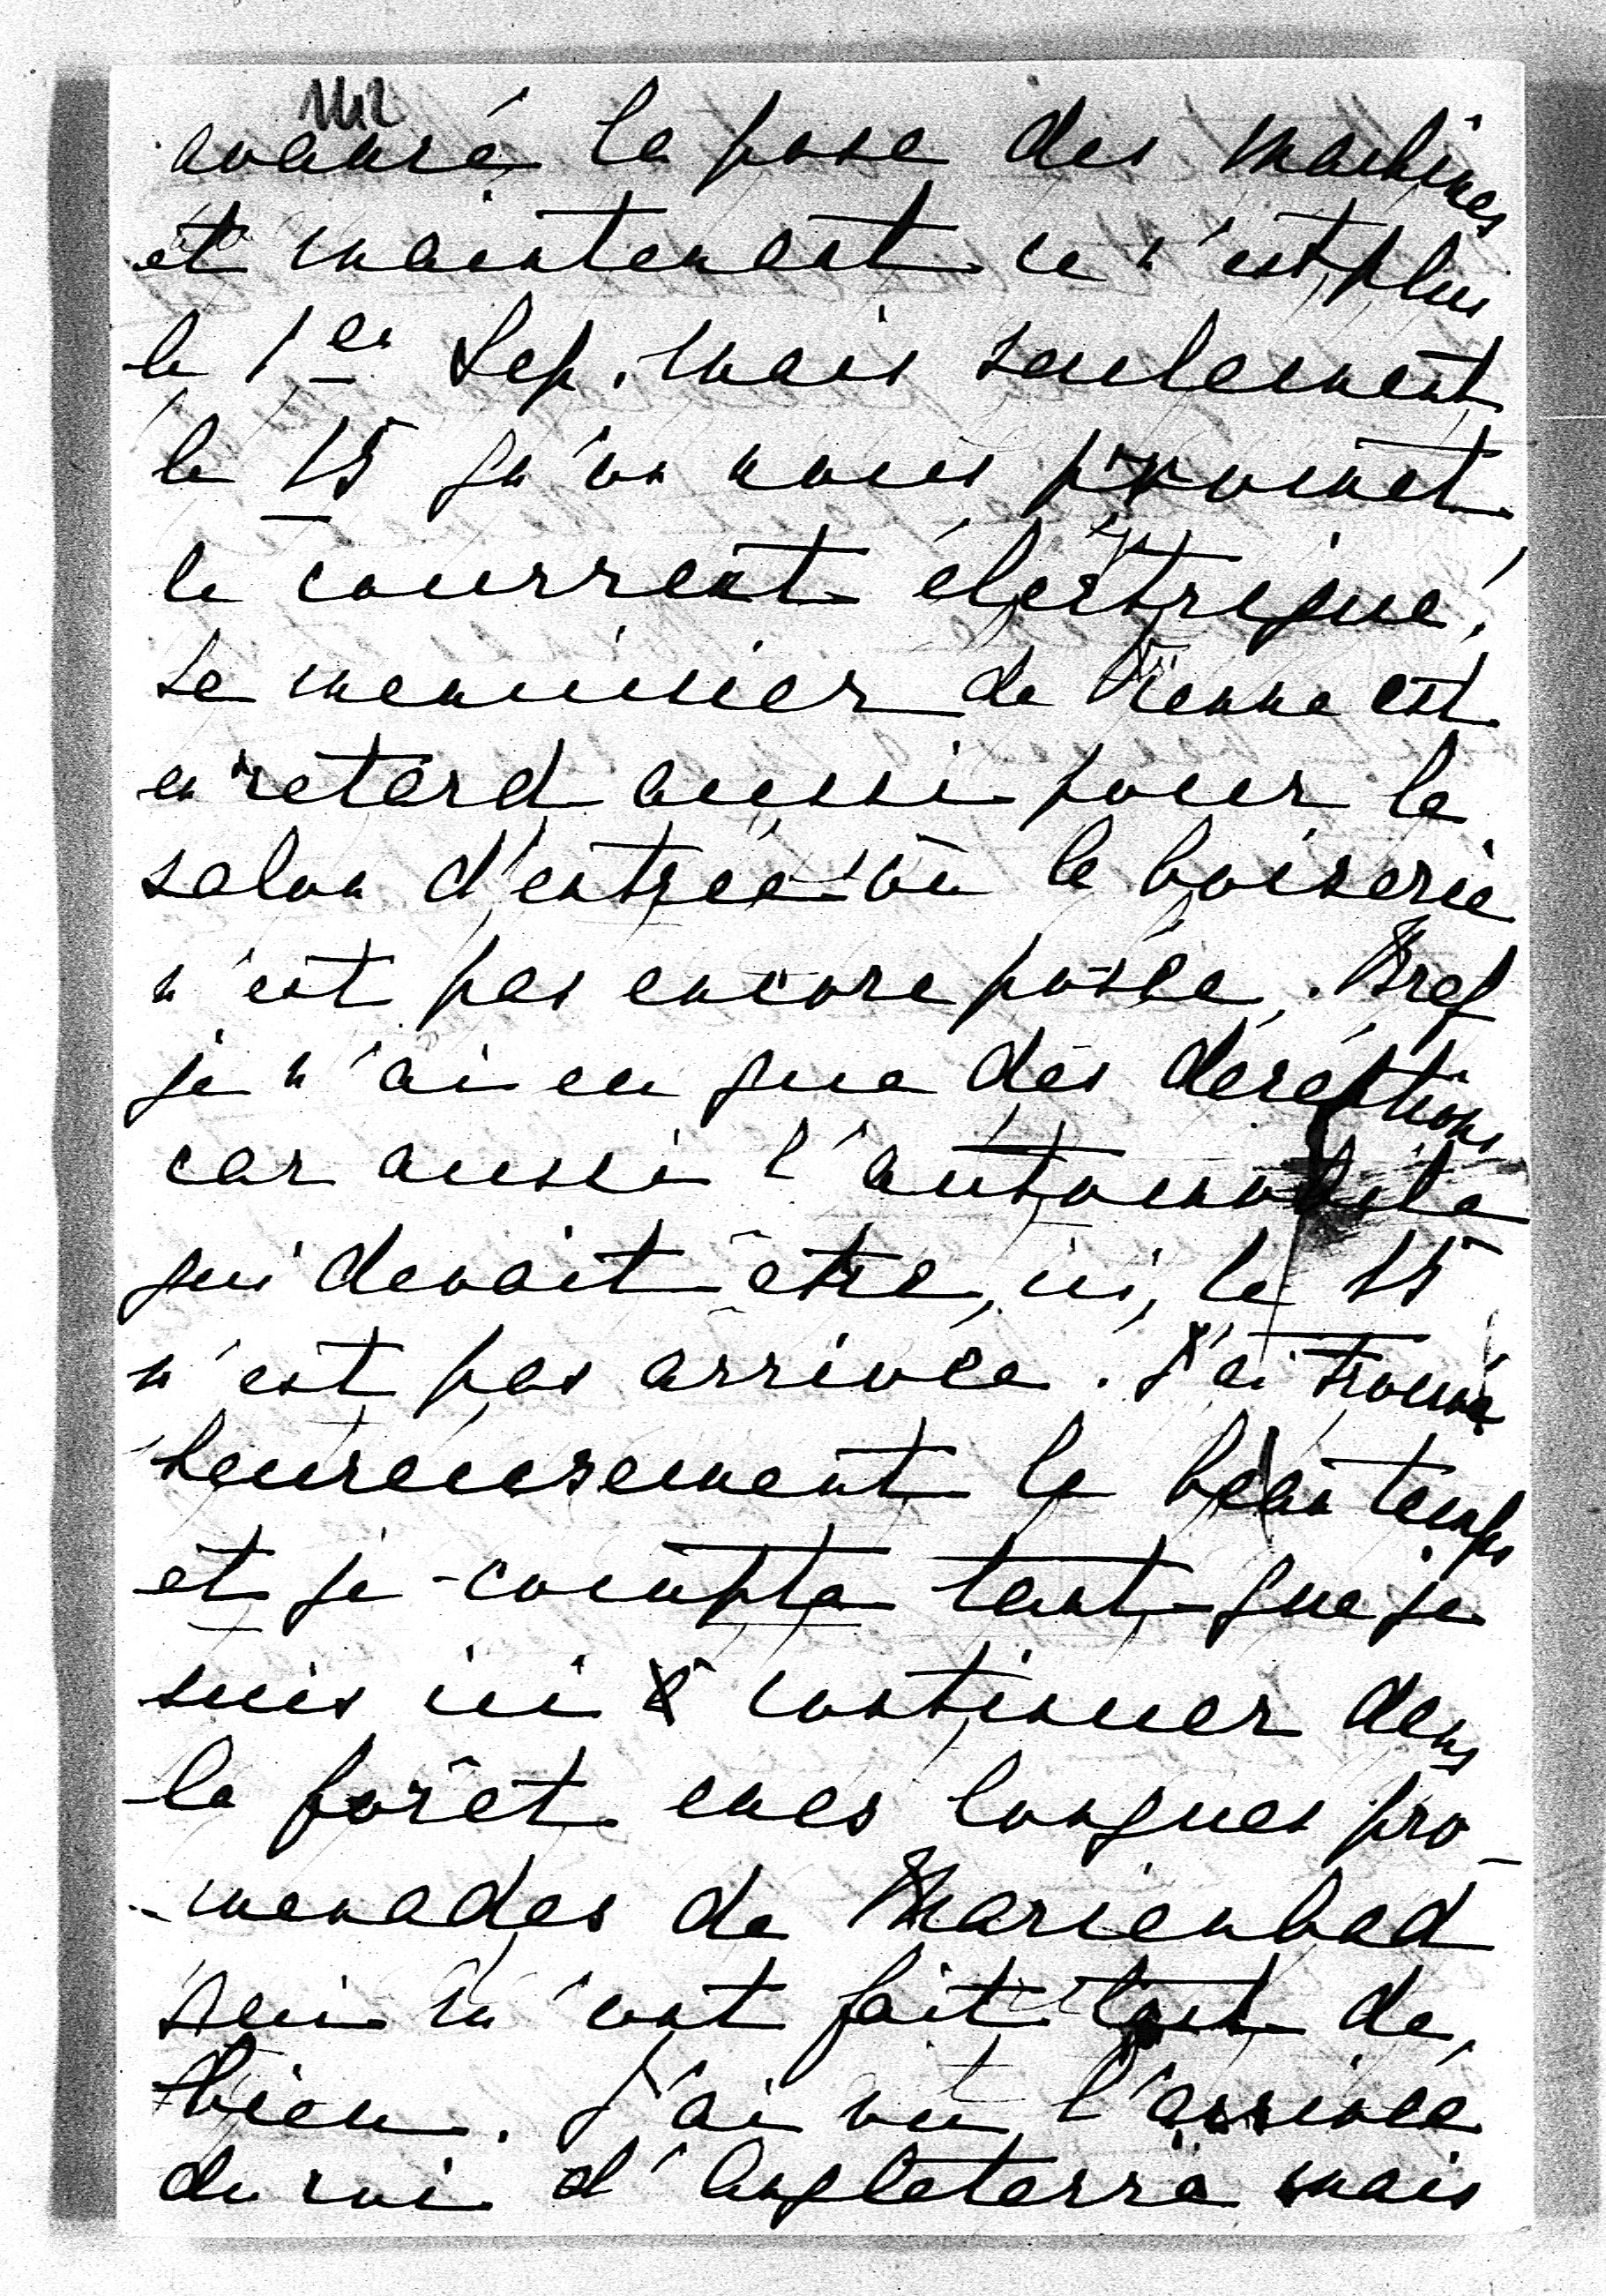 142
avancé la pose des machines
et maintenant ce n'est plus
le 1er Sep. mais seulement
le 15 qu'on nous promet
le courrent électrique!
Le menuisier de Vienne est
en retard aussi pour le
salon d'entrée où la boiserie
n'est pas encore posée. Bref
je n'ai eu que des déceptions
car aussi l'automobile
qui devait être, ici, le 15
n'est pas arrivée. J'ai trouvé
heureusement le beau temps
et je compte tant que je
suis ici à continuer dans
la forêt mes longues pro-
-menades de Marienbad
qui m'ont fait tant de
bien. J'ai vu l'arrivée
du roi d'Angleterre mais